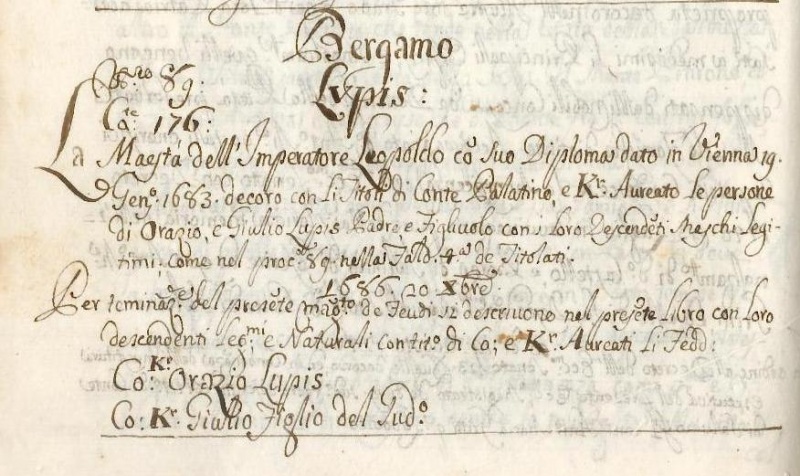 Bergamo
N.ro 89.
Lupis:
Ca.te 176:
La Maestà dell'Imperatore Leopoldo cō suo Diploma dato in Vienna 19.
Gen.o 1683. decorò con Li Titoli di Conte Palatino, e K.r Aureato le persone
di Orazio, e Giulio Lupis Padre e Figliuolo con i Loro Descendēti Maschi Legi-
timi; come nel proc.o 89. nella Fald.a 4.a de Titolati.
1686. 20 Xbre
Per terminaz.e del presēte Mag.to de Feudi si descrivono nel presēte Libro con Loro
descendenti Leg.mi e Naturali con tit.o di Co: e K.r Aureati Li Fedd:
Co: K.r Orazio Lupis
Co: K.r Giulio Figlio del Sud.o